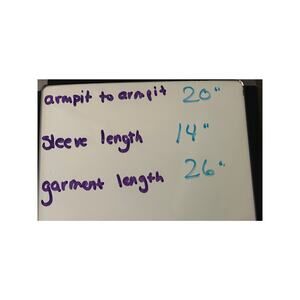 armpit to armpit 20"
sleeve length 14"
garment length 26"